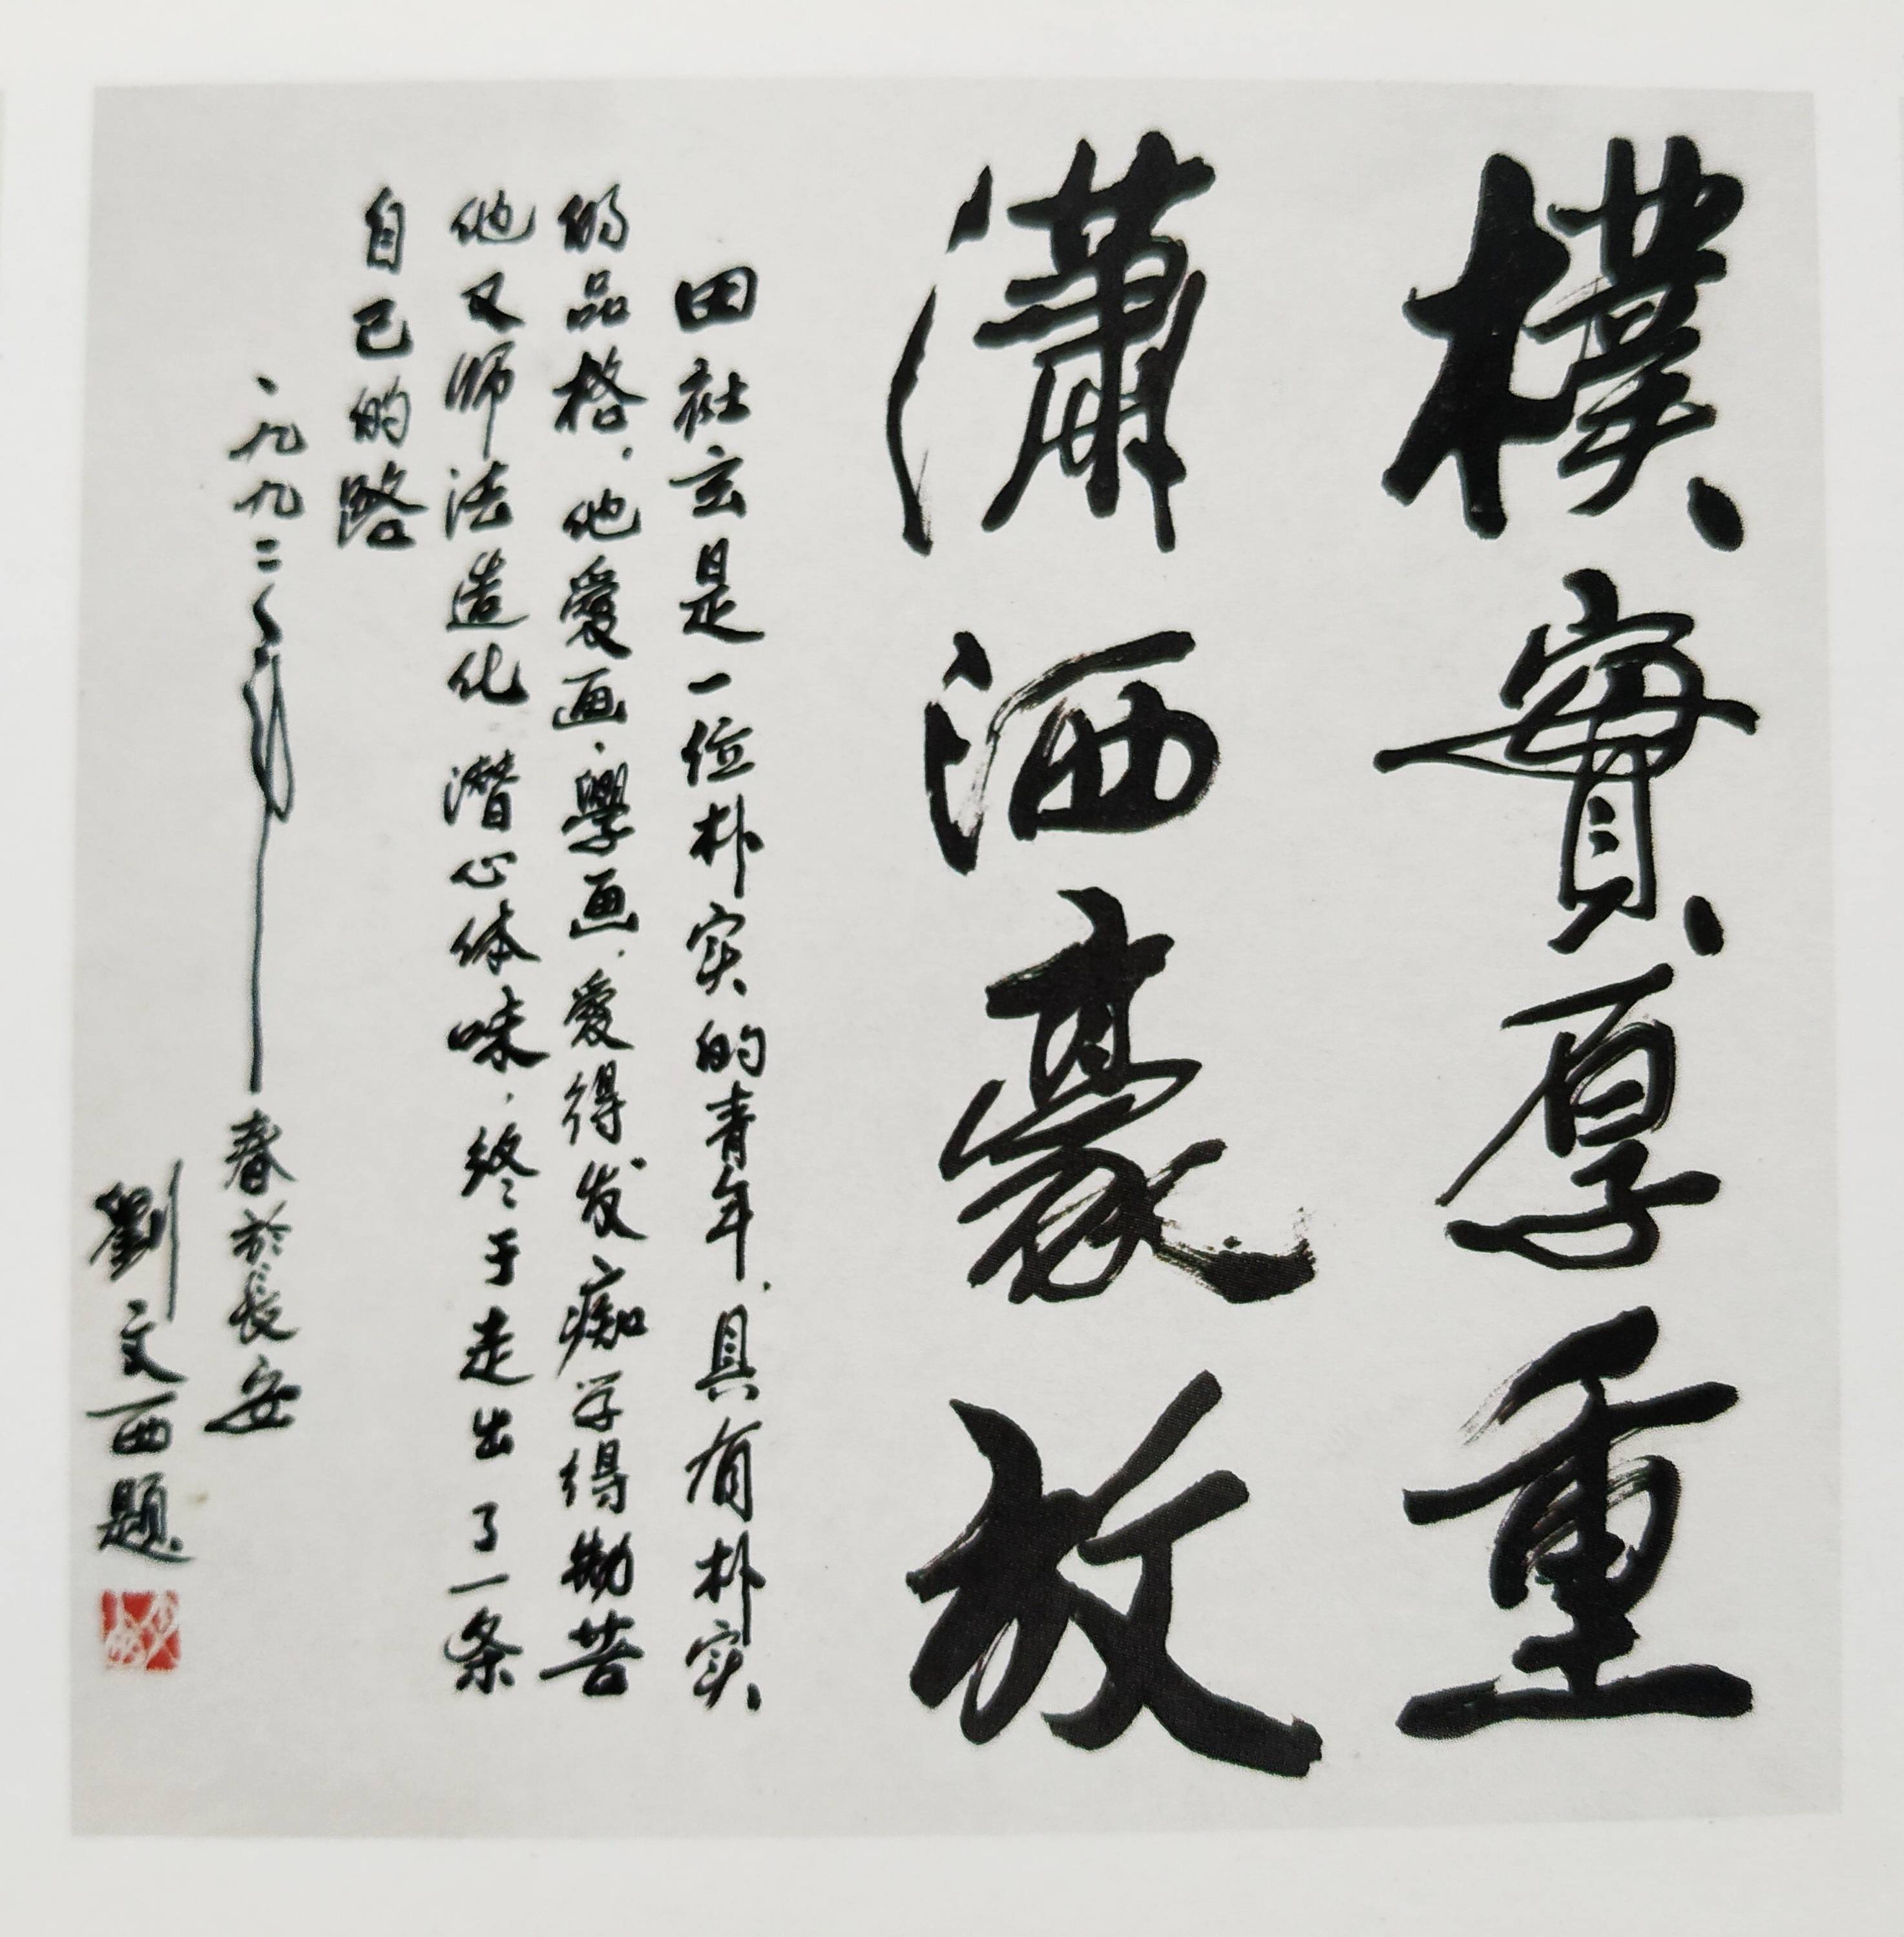 樸實厚重
瀟洒豪放
田社玄是一位朴实的青年.具有朴实
的品格.他爱画.學画.爱得发痴学得勤苦
他又师法造化潜心体味.终于走出了一条
自己的路
一九九二年春於長安
劉文西题